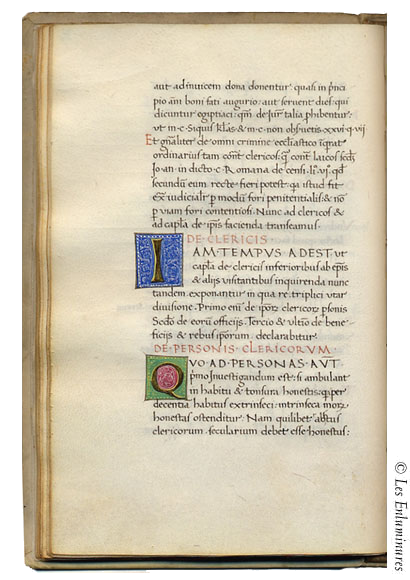 aut adinuicem dona donentur quasi in prĩci
pio añi boni fati augurio aut seruent dies qui
dicuntur egiptiaci qm̃ de Jure talia phibentur
ut m c Siquis kl̃as & m c non obseruetis xxvi q vii
Et gñaliter de omni crimine eccl̃iastico
ordinarius tam cont̃ clericos q̃ cont̃ laicos
Jo an in dicto c Romana de censi li vi
secundum eum recte fieri potest qa istud fit
ex iudiciali p modũ fori penitentialis & nõ
p viam fori contentiosi Nunc ad clericos &
ad capl̃a de ip̃is facienda transeamus
DE CLERICIS
IAM TEMPUS ADEST ut
capl̃a de clericis inferioribus ab ep̃is
& alijs uisitantibus inquirenda nunc
tandem exponantur in qua re triplici utar
diuisione Primo eñi de ip̃orũ clericorũ p̃sonis
Scd̃o de eorũ officijs Tercio & ultĩo de bene
ficijs & rebus ip̃orum declarabitur
DE PERSONIS CLERICORUM
QUO AD PERSONAS AUT
p̃mo Inuestigandum est si ambulant
in habitu & tonsura honestis per
decentiã habitus extrinseci intrinseca morũ
honestas ostenditur Nam quilibet
clericorum secularium debet esse honestus
© Les Enluminures